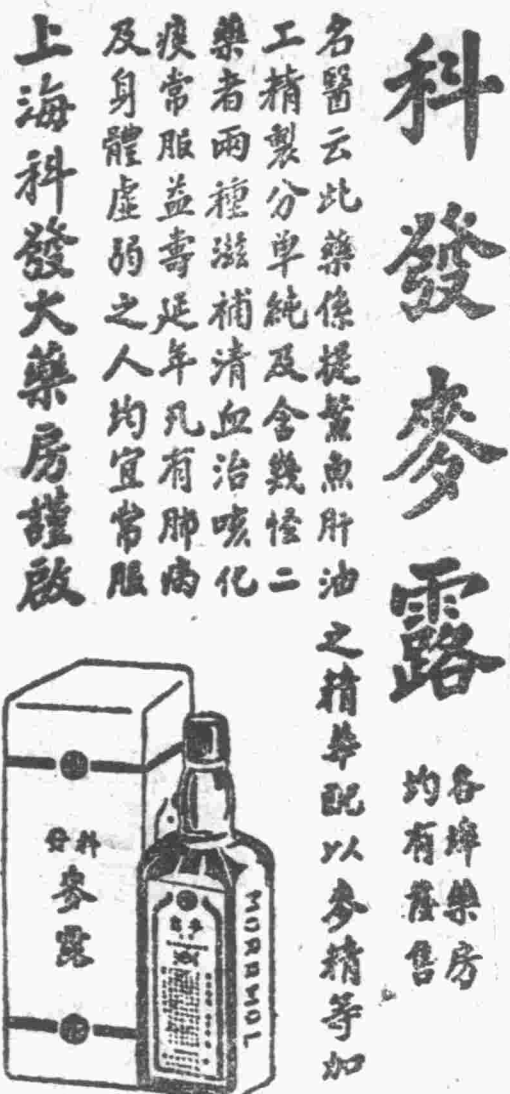 科發麥露
各埠藥房
均有發售
名醫云此藥係提鱉魚肝油之精華配以麥精等加
工精製分单純及含幾怪二
藥者兩種滋補清血治咳化
痰常服益壽延年凡有肺病
及身體虛弱之人均宜常服
上海科發大藥房謹啟
科發
麥露
MORRMOL